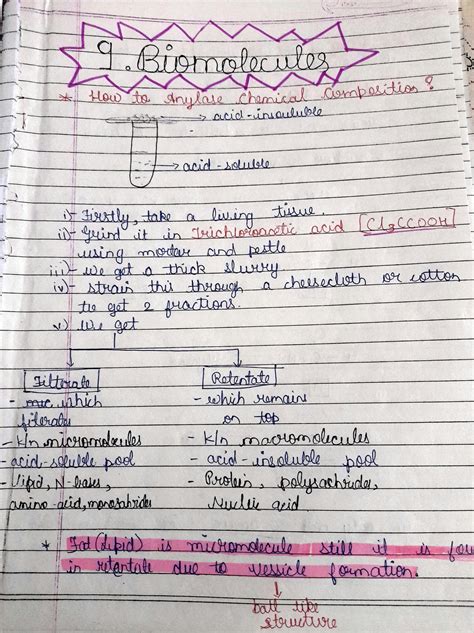 9. Biomolecules
* How to Anylase Chemical Composition?
→ acid-insouluble
→ acid-soluble
i) Firstly, take a living tissue.
ii) Grind it in Trichloroacetic acid [Cl3CCOOH]
using mortar and pestle
iii) We get a thick slurry.
iv) strain this through a cheesecloth or cotton
to get 2 fractions.
v) We get
Filterate
- which
filerates
- K/n micromolecules
- acid-soluble pool
- Lipid, N-bases,
amino-acid, monosahrides
Retentate
- which remains
on top
- K/n macromolecules
- acid-insoluble pool
- Protein, polysachrides,
Nucleic acid.
* Fat (Lipid) is micromolecule still it is fou
in retentate due to vessicle formation.
ball like
structure